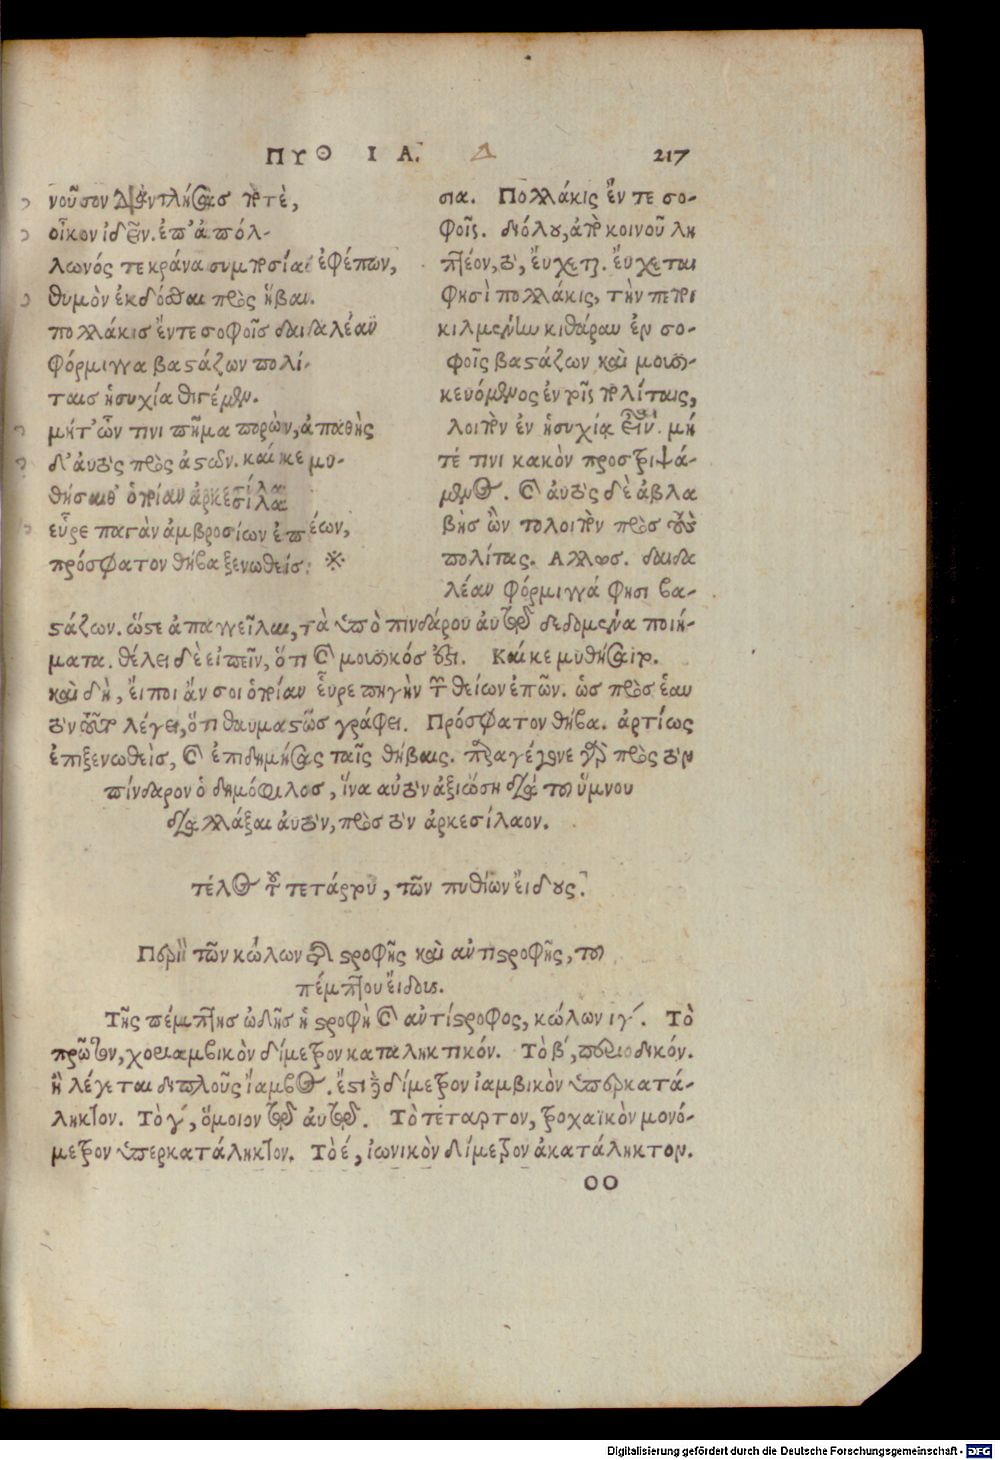 ΠΥΘΙΑ. Δ 217
νοῦσον διαντλήσας ποτὲ,
οἶκον ἰδεῖν. ἐπ' ἀπόλ-
λωνός τε κράνα συμποσίας ἐφέπων,
θυμὸν ἐκδόσθαι πρὸς ἥβαν.
πολλάκις ἔν τε σοφοῖς δαιδαλέαν
φόρμιγγα βαστάζων πολί-
ταις ἡσυχίᾳ θιγέμεν.
μήτ' ὦν τινι πῆμα πορὼν, ἀπαθὴς
δ' αὐτὸς πρὸς ἀστῶν. καί κε μυ-
θήσαιθ' ὁποίαν ἀρκεσίλα
εὗρε παγὰν ἀμβροσίων ἐπέων,
πρόσφατον θήβᾳ ξενωθείς: ※
σια. Πολλάκις ἔν τε σο-
φοῖς. δι' ὅλου, ἀπὸ κοινοῦ λη
πτέον, τὸ, εὔχεται. εὔχεται
φησὶ πολλάκις, τὴν πεποι
κιλμένην κιθάραν ἐν σο-
φοῖς βαστάζων καὶ μουσι-
κευόμενος ἐν τοῖς πολίταις,
λοιπὸν ἐν ἡσυχίᾳ εἶναι. μή
τέ τινι κακὸν προστριψά-
μενος. καὶ αὐτὸς δὲ ἀβλα
βὴς ὢν τολοιπὸν πρὸς τοὺς
πολίτας. Αλλως. δαιδα
λέαν φόρμιγγά φησι βα-
στάζων. ὥστε ἀπαγγεῖλαι, τὰ ὑπὸ πινδάρου αὐτῷ δεδομένα ποιή-
ματα. θέλει δὲ εἰπεῖν, ὅτι καὶ μουσικός ἐστι. Καί κε μυθήσαιτο.
καὶ δὴ, εἴποι ἄν σοι ὁποίαν εὗρε πηγὴν τῶν θείων ἐπῶν. ὡς πρὸς ἑαυ
τὸν τοῦτο λέγει, ὅτι θαυμαστῶς γράφει. Πρόσφατον θήβᾳ. ἀρτίως
ἐπιξενωθεὶς, καὶ ἐπιδημήσας ταῖς θήβαις. παραγέγονε γὰρ πρὸς τὸν
πίνδαρον ὁ δημόφιλος, ἵνα αὐτὸν ἀξιώσῃ διὰ τοῦ ὕμνου
διαλλάξαι αὐτὸν, πρὸς τὸν ἀρκεσίλαον.
τέλος τοῦ τετάρτου, τῶν πυθίων εἴδους.
Περὶ τῶν κώλων τῆς στροφῆς καὶ αντιστροφῆς, τοῦ
πέμπτου εἴδους.
Τῆς πέμπτης ὠδῆς ἡ στροφὴ καὶ αντίστροφος, κώλων ιγ´. Τὸ
πρῶτον, χοριαμβικὸν δίμετρον καταληκτικόν. Τὸ β´, περιοδικόν.
ἢ λέγεται διπλοῦς ἴαμβος. ἔστι γὰρ δίμετρον ἰαμβικὸν ὑπερκατά-
ληκτον. Τὸ γ´, ὅμοιον τῷ αὐτῷ. Τὸ τέταρτον, τροχαϊκὸν μονό-
μετρον ὑπερκατάληκτον. Τὸ έ, ἰωνικὸν δίμετρον ἀκατάληκτον.
OO
Digitalisierung gefördert durch die Deutsche Forschungsgemeinschaft - DFG